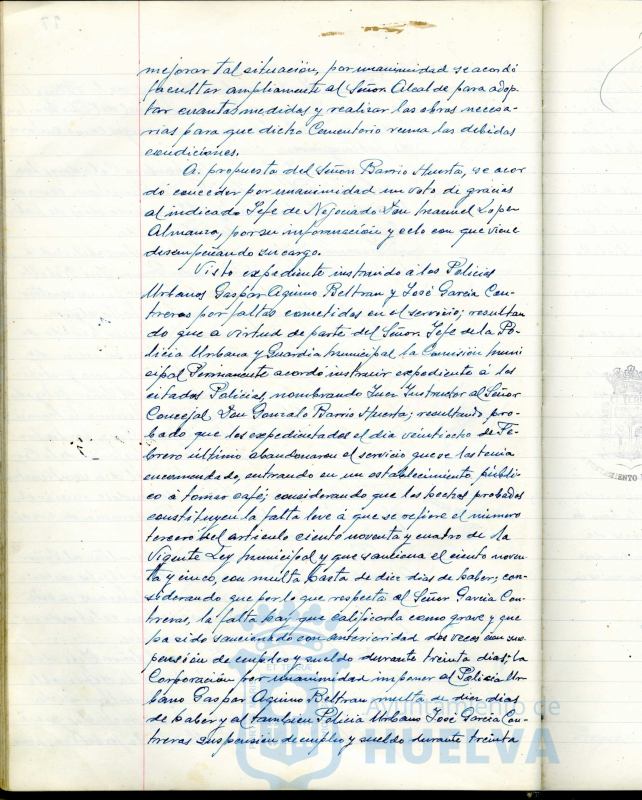 mejorar tal situación, por unanimidad se acordó
facultar ampliamente al Señor Alcalde para adop-
tar cuantas medidas y realizar las obras necesa-
rias para que dicho Cementerio reuna las debidas
condiciones.
A propuesta del Señor Barrio Huerta, se acor
dó conceder por unanimidad un voto de gracias
al indicado Jefe de Negociado Don Manuel Lopez
Almanza, por su información y celo con que viene
desempeñando su cargo.
Visto expediente instruido á los Policias
Urbanos Gaspar Aquino Beltran y José Garcia Con-
treras por faltas cometidas en el servicio; resultan
do que a virtud de parte del Señor Jefe de la Po-
licia Urbana y Guardia municipal la Comisión muni
cipal Permanente acordó instruir expediente á los
citados Policias, nombrando Juez Instructor al Señor
Concejal Don Gonzalo Barrio Huerta; resultando pro-
bado que los expedientados el dia veintiocho de Fe-
brero último abandonaron el servicio que se les tenia
encomendado, entrando en un establecimiento públi-
co á tomar café; considerando que los hechos probados
constituyen la falta leve á que se refiere el número
tercero del articulo ciento noventa y cuatro de la
Vigente Ley Municipal y que sanciona el ciento noven
ta y cinco, con multa hasta de diez dias de haber; con-
siderando que por lo que respecta al Señor Garcia Con-
treras, la falta hay que calificarla como grave y que
ha sido sancionado con anterioridad dos veces con sus
pensión de empleo y sueldo durante treinta dias; la
Corporación por unanimidad imponer al Policia Ur-
bano Gaspar Aquino Beltran multa de diez dias
de haber y al tambien Policia Urbano José Garcia Con-
treras suspension de empleo y sueldo durante treinta
Ayuntamiento de
HUELVA